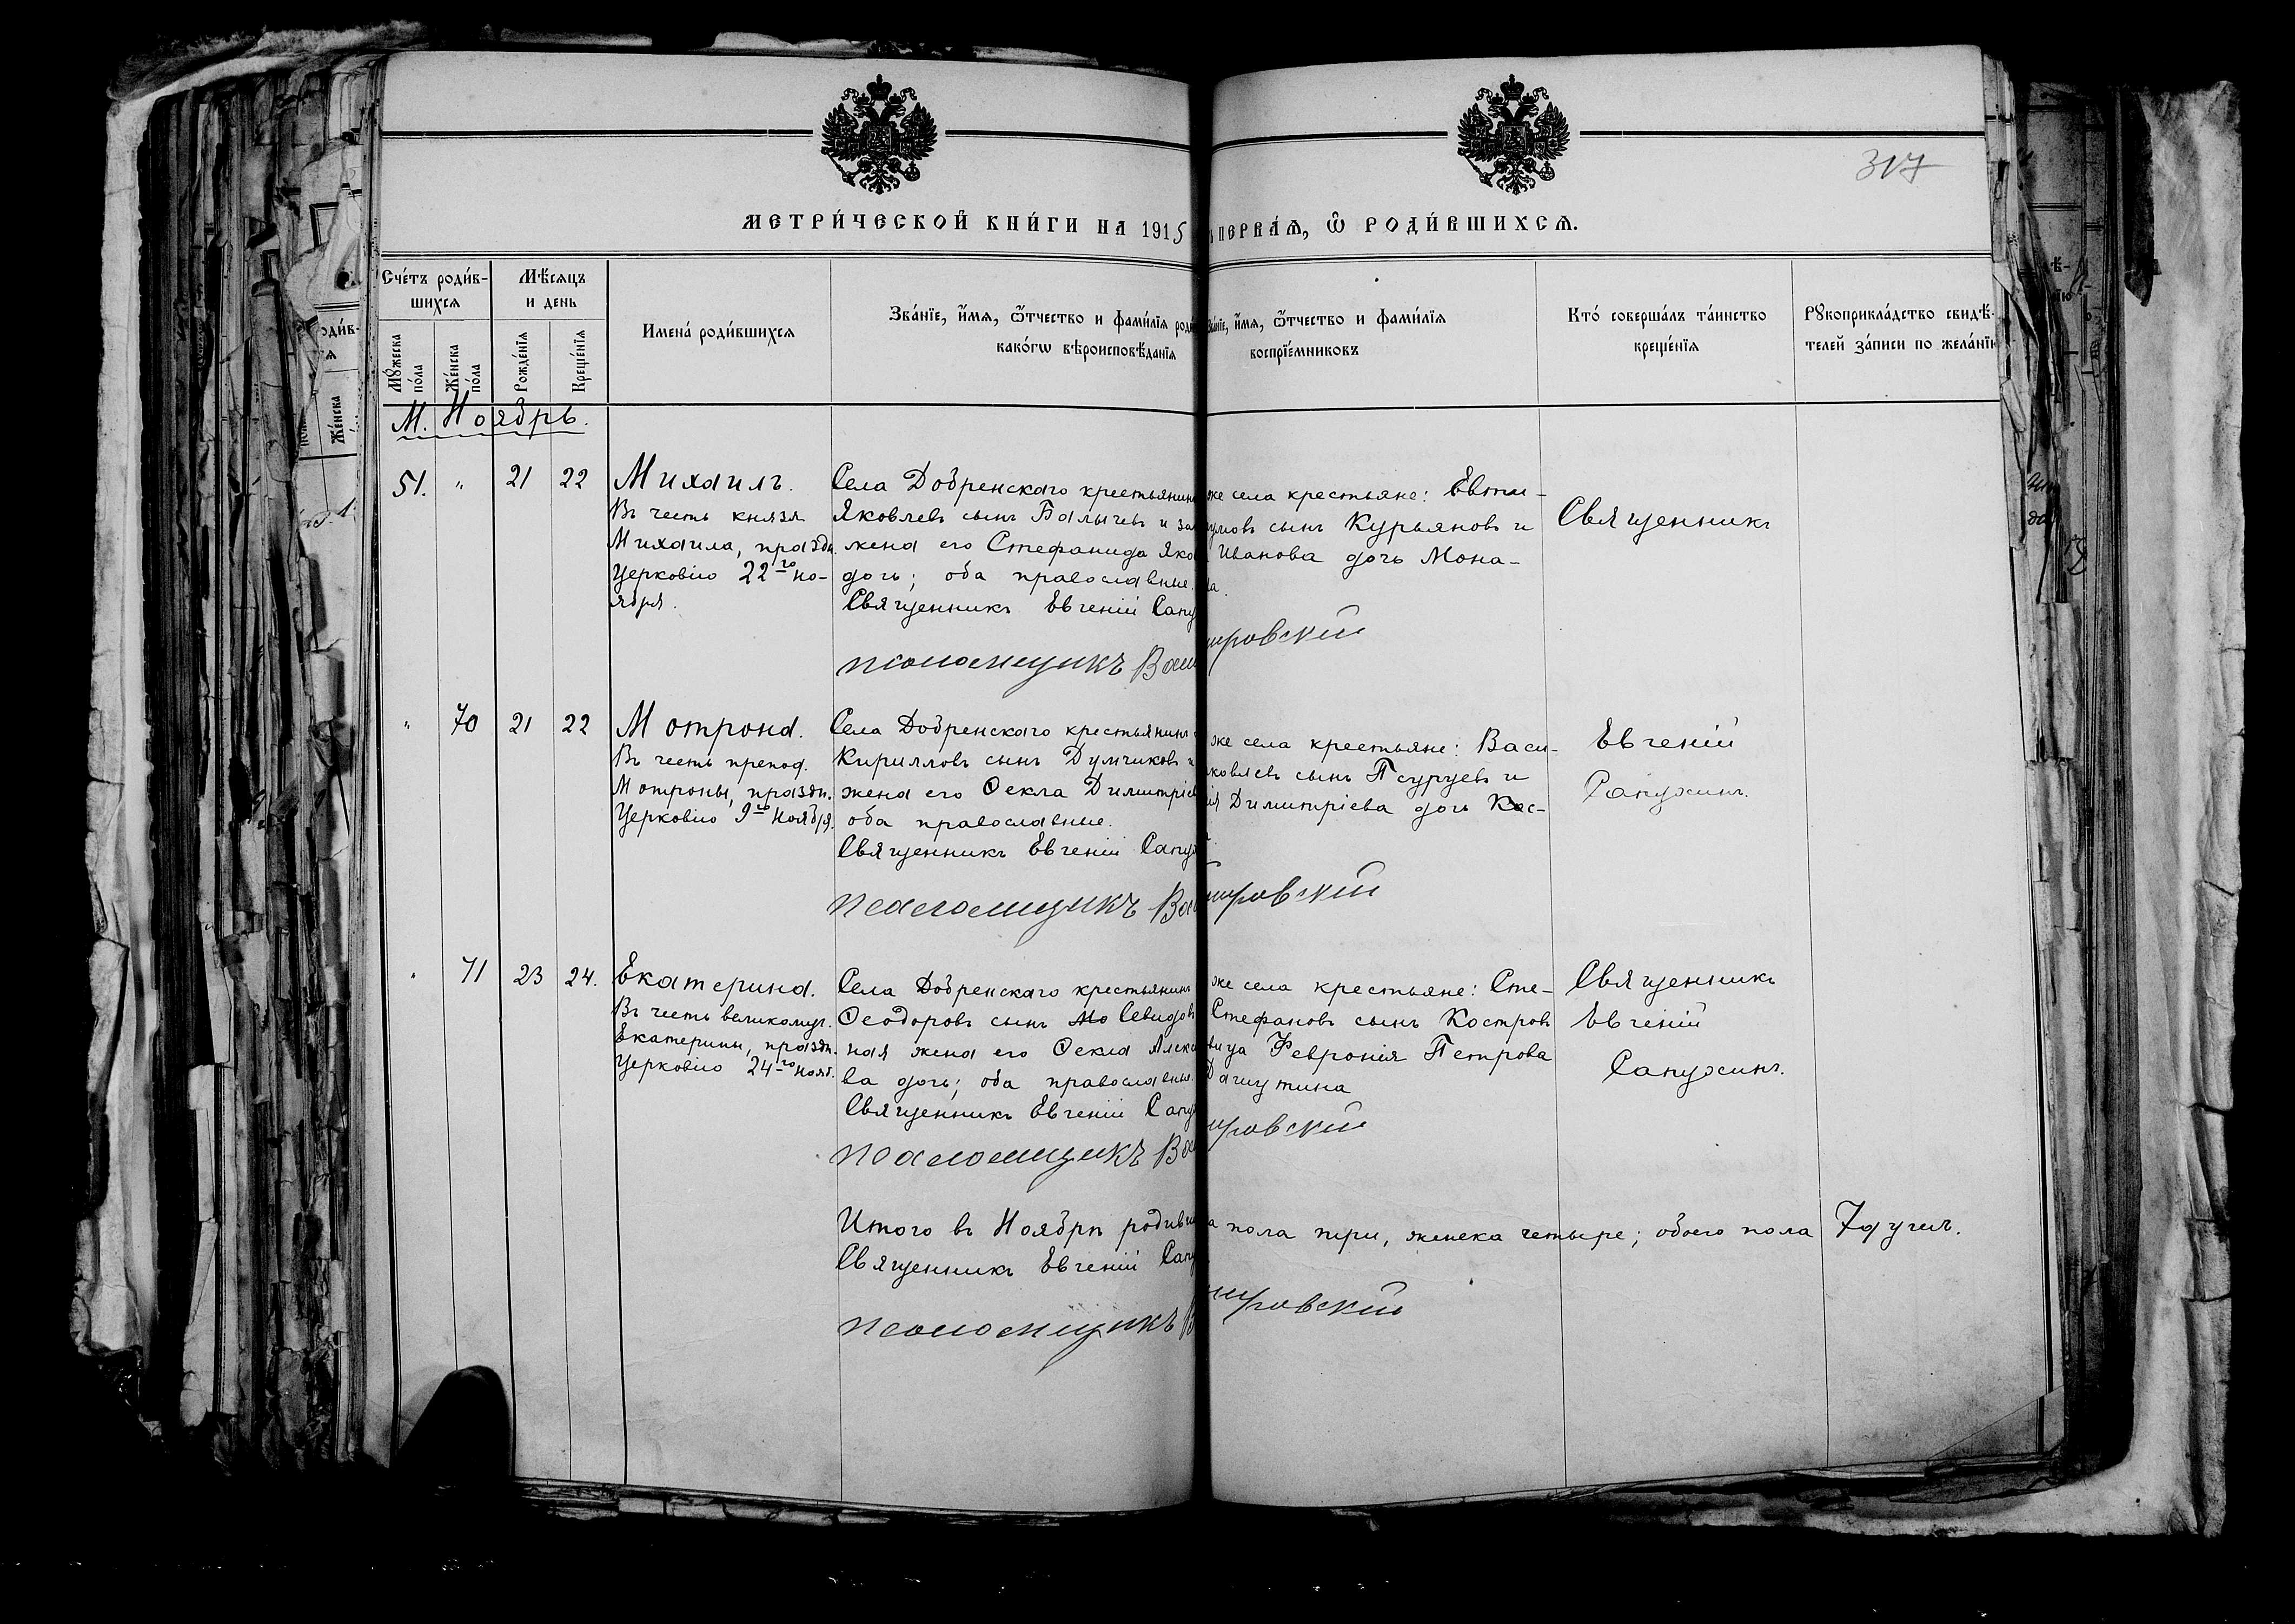 317
МЕТРИ́ЧЕСКОЙ КНИ́ГИ НА 1915
ПЕРВА́Я, Ѿ РОДИ́ВШИХСЯ.
Сче́тъ роди́в-
шихся
Мѣ́сяцъ
и день
Мꙋ́жеска
по́ла
Же́нска
по́ла
Рожде́нїя
Креще́нїя
Имена̀ роди́вшихся
Зва́нїе, и҆́мя, ѻ҆́тчество и фами́лїя роди
како́гѡ вѣроисповѣ́данїя
Зва́нїе, и҆́мя, ѻ҆́тчество и фами́лїя
воспрїе́мниковъ
Кто́ соверша́лъ та́инство
креще́нїя
Рꙋкоприкла́дство свидѣ́-
телей за́писи по жела́нїю
М. Ноябрь.
51. " 21 22
Михаилъ.
Въ честь князя
Михаила, праздн.
Церковію 22го но-
ября.
Села Добренскаго крестьянинъ
Яковлевъ сынъ Балычевъ и зак
жена его Стефанида Яков
дочь; оба православные.
Священникъ Евгеній Сапу
псаломщикъ Вла
же села крестьяне: Евти-
умовъ сынъ Курьяновъ и
Иванова дочь Мона-
ва.
мировскій
Священникъ
" 70 21 22
Мотрона.
Въ честь препод.
Мотроны, праздн.
Церковію 9го ноября.
Села Добренскаго крестьянинъ
Кирилловъ сынъ Думчиковъ и
жена его Ѳекла Димитріев
оба православные.
Священникъ Евгеній Сапу
псаломщикъ Вла
же села крестьяне: Васи-
яковлевъ сынъ Псурцевъ и
ія Димитріева дочь Кос-
мировскій
Евгеній
Сапухинъ.
" 71 23 24.
Екатерина.
Въ честь великомуч.
Екатерины, праздн.
Церковію 24го нояб.
Села Добренскаго крестьянинъ
Ѳеодоровъ сынъ Севидовъ
ная жена его Ѳекла Алекс
ва дочь; оба православные.
Священникъ Евгеній Сапу
псаломщикъ Вла
же села крестьяне: Сте-
Стефановъ сынъ Костровъ
вица Февронія Петрова
мировскій
Священникъ
Евгеній
Сапухинъ.
Итого въ Ноябрѣ родивш
а пола три, женска четыре; обоего пола 7 душъ.
Священникъ Евгеній Сапу
псаломщикъ В
мировскій